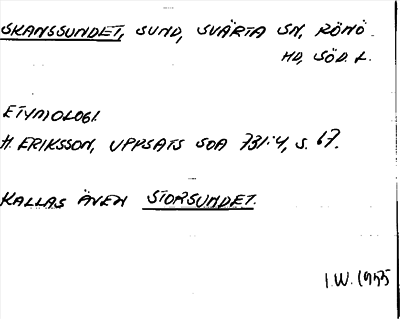 SKANSSUNDET, SUND, SVÄRTA SN, RÖNÖ
HD, SÖD. L.
ETYMOLOGI.
H. ERIKSSON, UPPSATS SOA 731:4, S. 67.
KALLAS ÄVEN STORSUNDET.
I.W. 1955